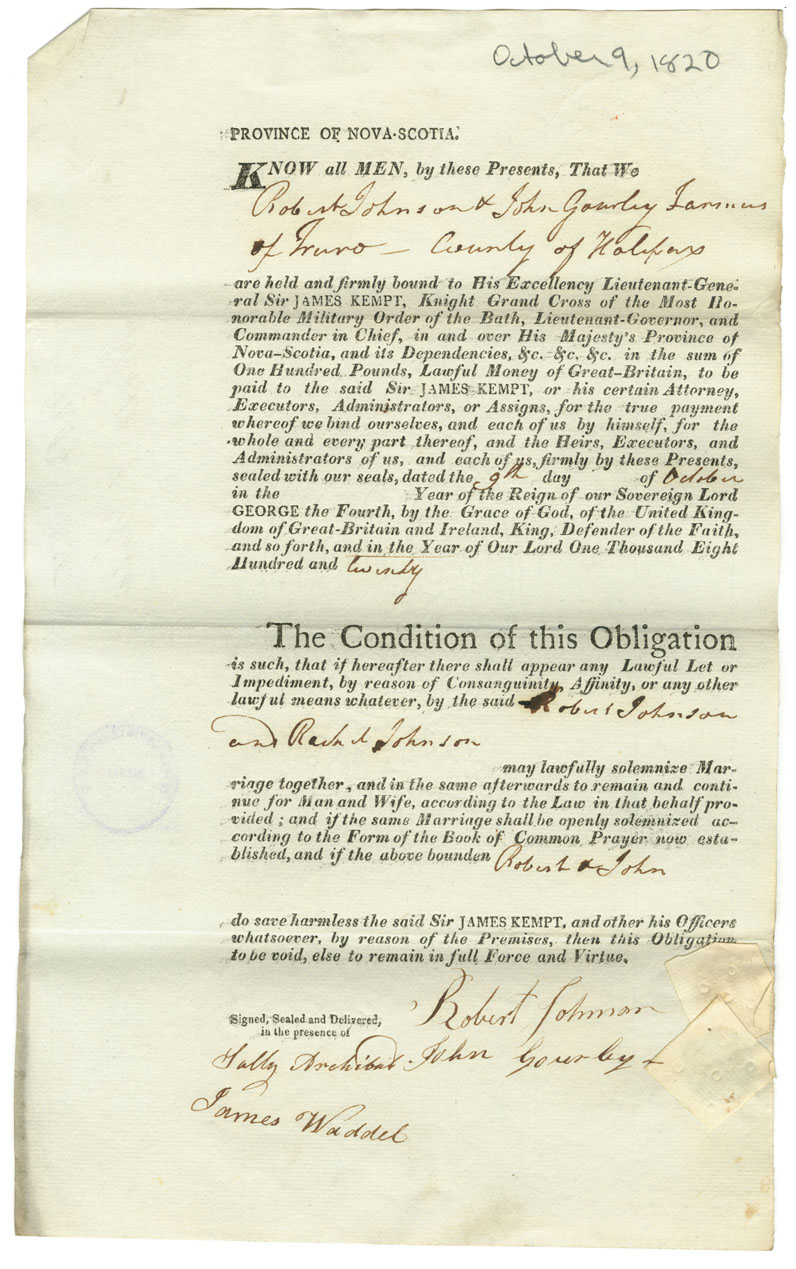 October 9, 1820
PROVINCE OF NOVA-SCOTIA.
KNOW all MEN, by these Presents, That We
Robert Johnson & John Gourley Farmers
of Truro — County of Halifax
are held and firmly bound to His Excellency Lieutenant-Gene-
ral Sir JAMES KEMPT, Knight Grand Cross of the Most Ho-
norable Military Order of the Bath, Lieutenant-Governor, and
Commander in Chief, in and over His Majesty's Province of
Nova-Scotia, and its Dependencies, &c. &c. &c. in the sum of
One Hundred Pounds, Lawful Money of Great-Britain, to be
paid to the said Sir JAMES KEMPT, or his certain Attorney,
Executors, Administrators, or Assigns, for the true payment
whereof we bind ourselves, and each of us by himself, for the
whole and every part thereof, and the Heirs, Executors, and
Administrators of us, and each of us, firmly by these Presents,
sealed with our seals, dated the 9th day of October
in the Year of the Reign of our Sovereign Lord
GEORGE the Fourth, by the Grace of God, of the United King-
dom of Great-Britain and Ireland, King, Defender of the Faith,
and so forth, and in the Year of Our Lord One Thousand Eight
Hundred and twenty
The Condition of this Obligation
is such, that if hereafter there shall appear any Lawful Let or
Impediment, by reason of Consanguinity, Affinity, or any other
lawful means whatever, by the said Robert Johnson
and Rachel Johnson
may lawfully solemnize Mar-
riage together, and in the same afterwards to remain and conti-
nue for Man and Wife, according to the Law in that behalf pro-
vided; and if the same Marriage shall be openly solemnized ac-
cording to the Form of the Book of Common Prayer now esta-
blished, and if the above bounden Robert & John
do save harmless the said Sir JAMES KEMPT, and other his Officers
whatsoever, by reason of the Premises, then this Obligation
to be void, else to remain in full Force and Virtue.
Signed, Sealed and Delivered,
in the presence of
Robert Johnson
Sally Archibald John Gourley
James Waddel